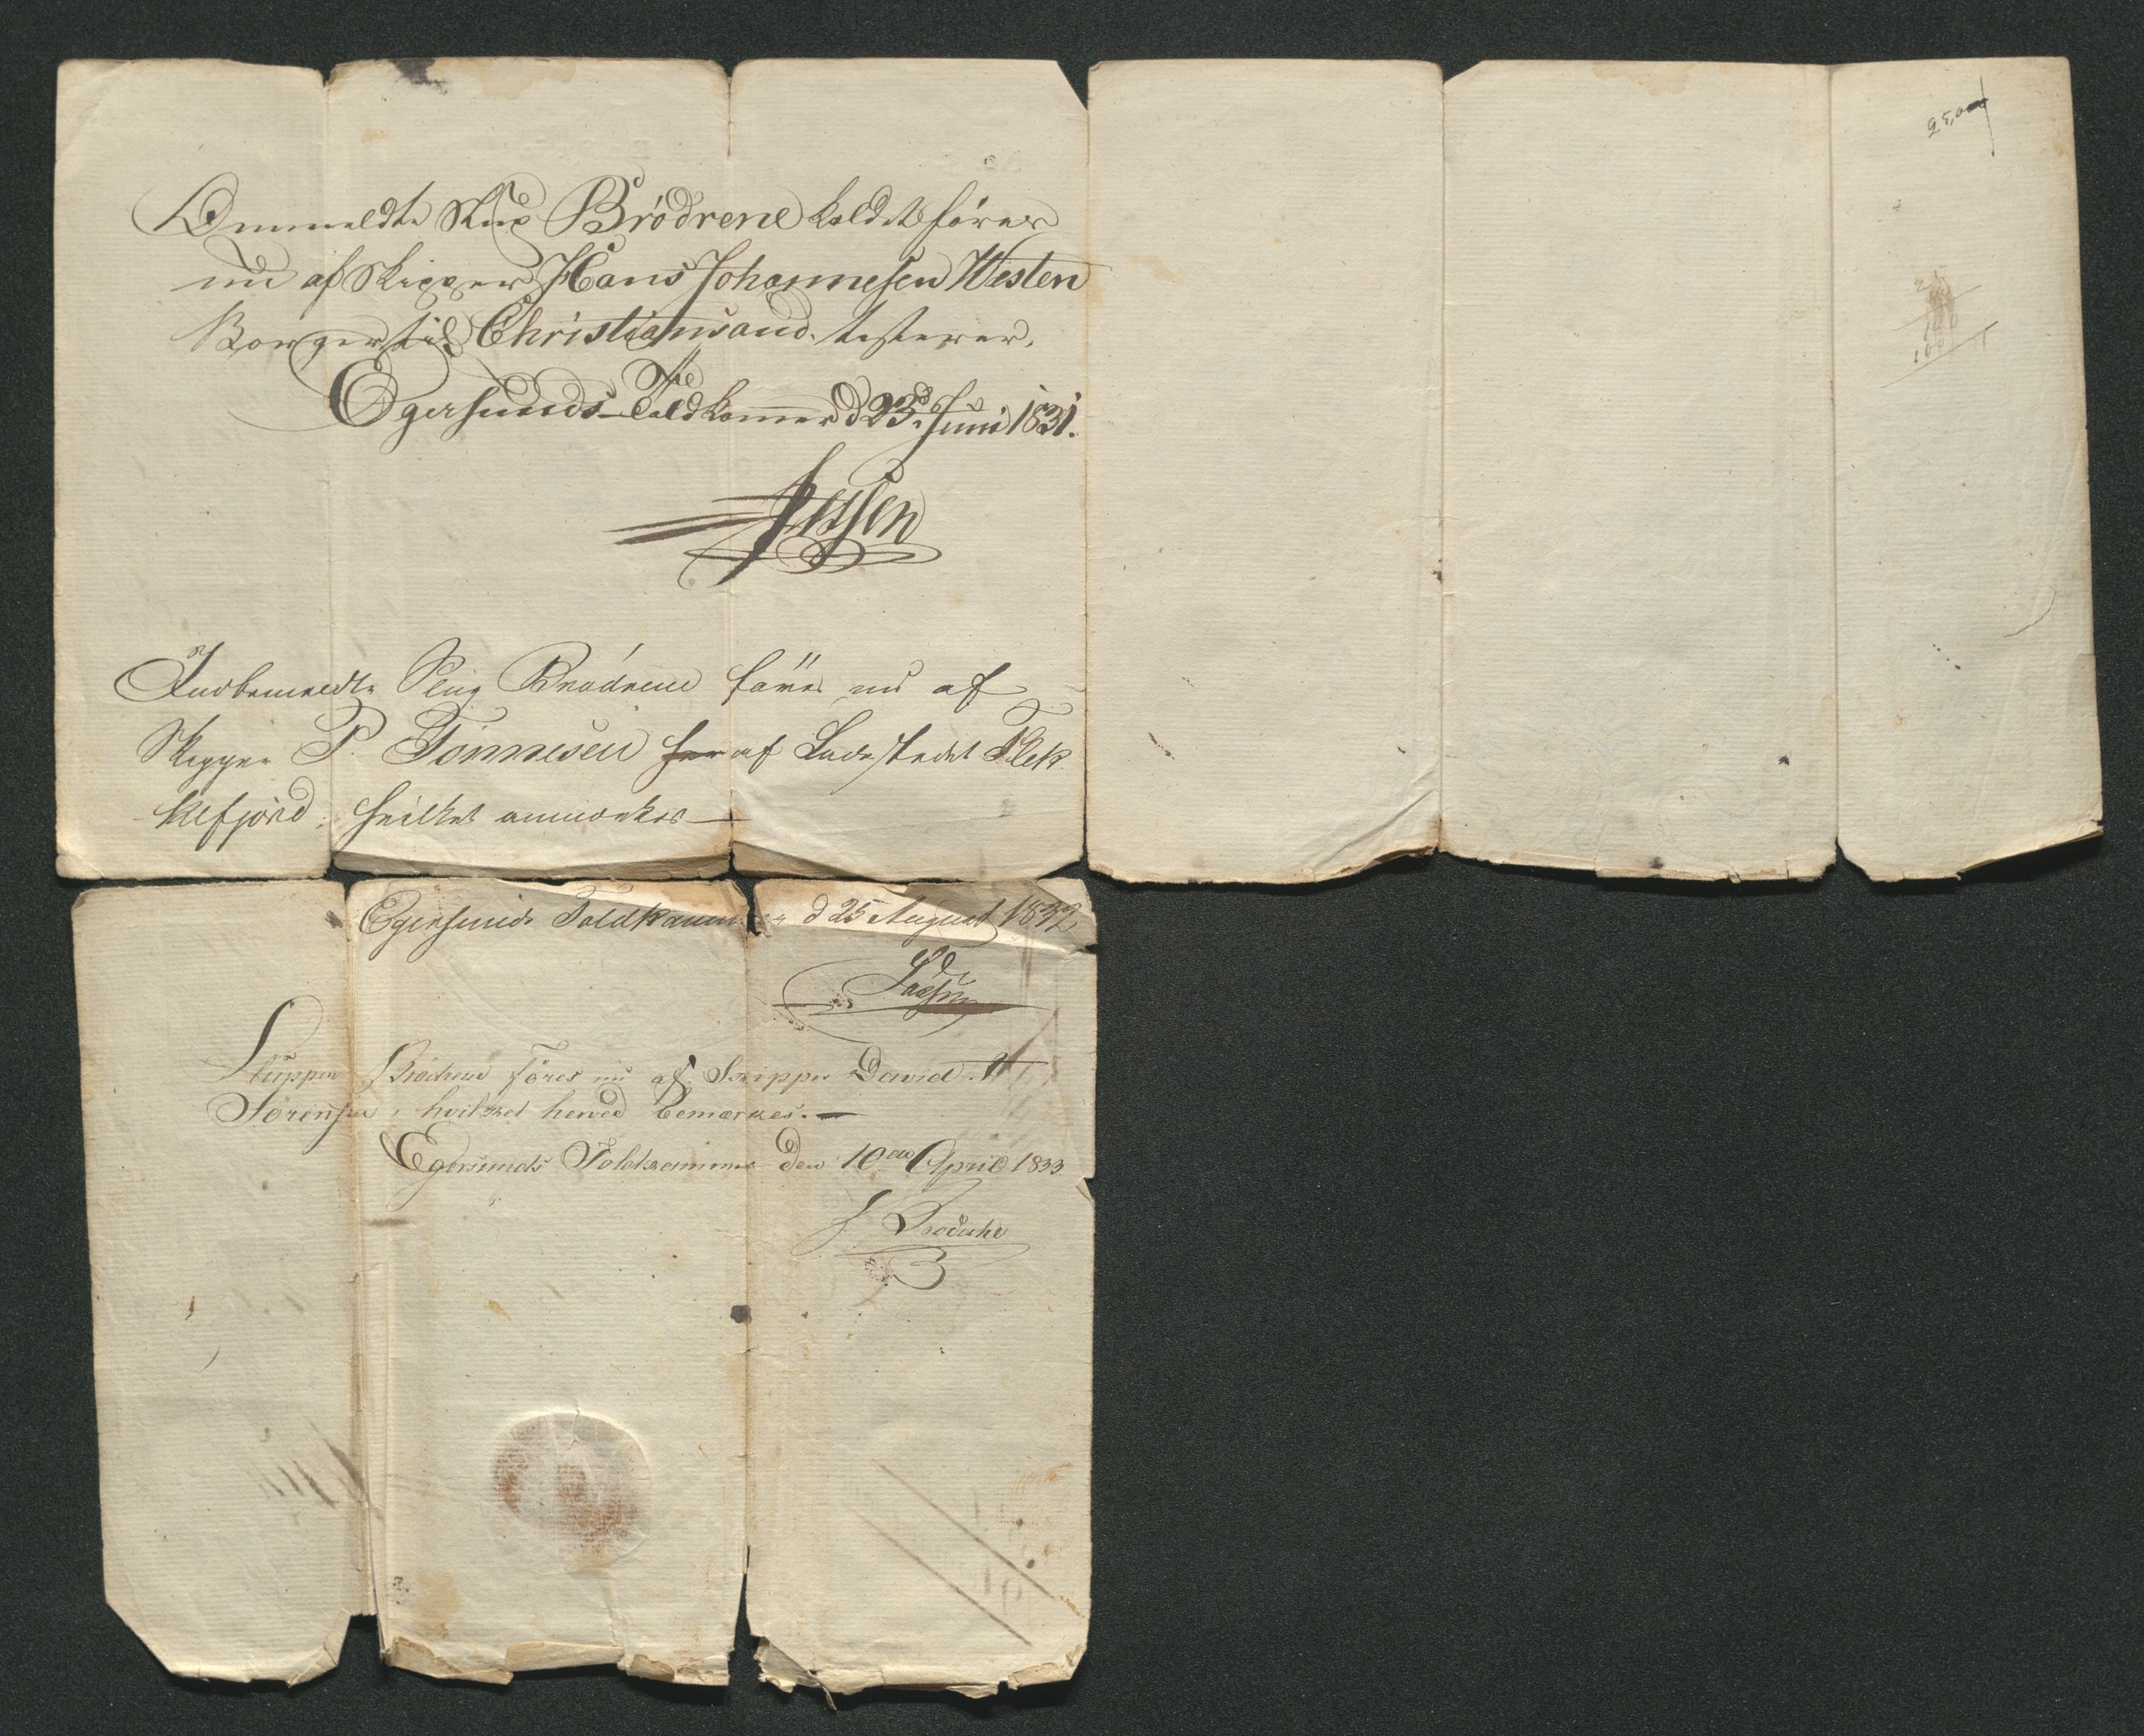 Ommeldte Slup Brödrene kaldet föres
nu af Skipper Hans Johannesen Westen
Borger til Christiansand, testerer.
Egersunds Toldkammer d 23d Juni 1831.
Jessen
Indbemeldte Slup Brödrene föres nu af
Skipper P. Tönnesen af Ladestedet Flek
kefjord, hvilket anmerkes
Egersunds Toldkammer d 25 August 1832
Sluppen Brödrene föres nu af Skipper David
Sörensen, hvilket herved bemærkes.
Egersunds Toldkammer den 10de April 1833
2500